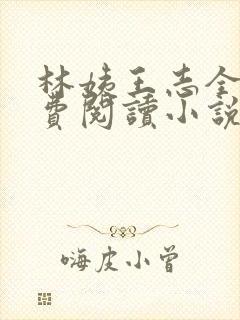 林姨王志全
費閱讀小說
嗨皮小曾